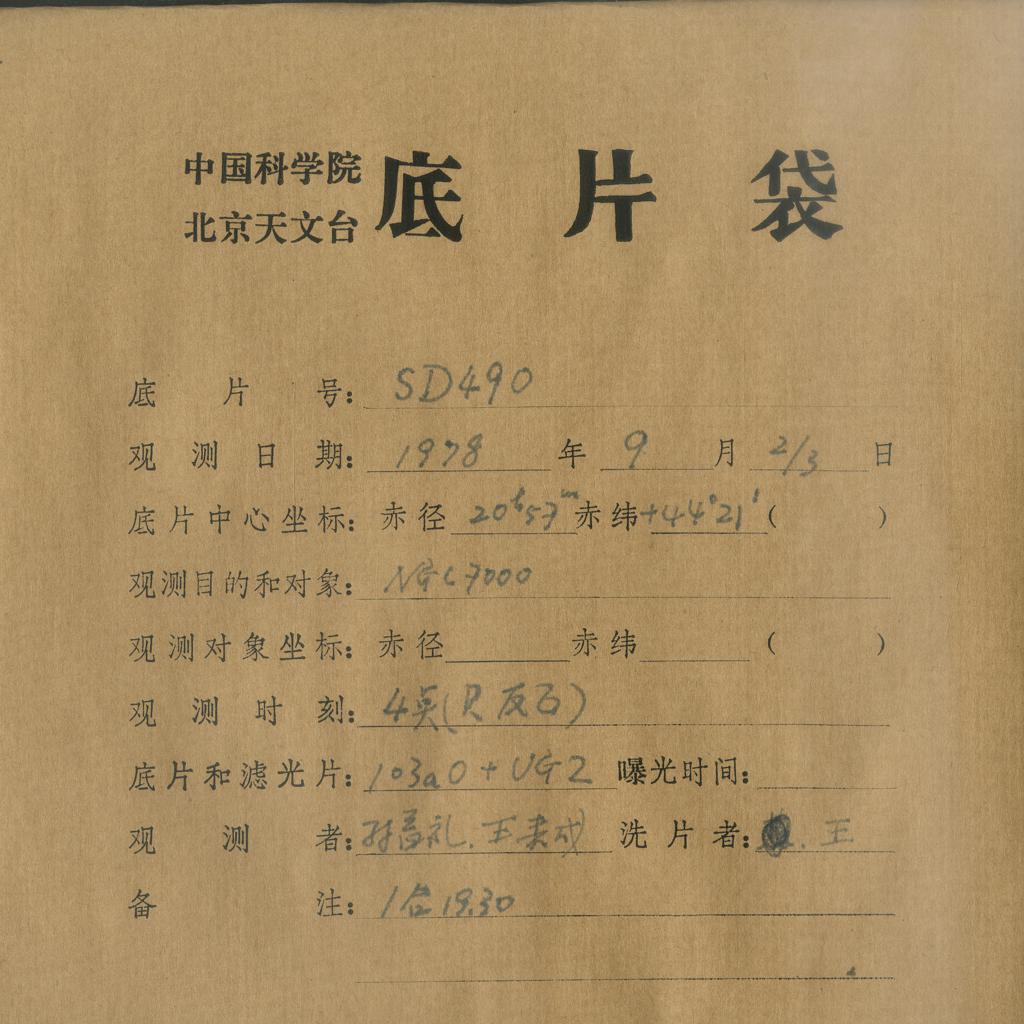 中国科学院
北京天文台
底片袋
底片号: SD490
观测日期: 1978 年 9 月 2/3 日
底片中心坐标: 赤径 20ʰ57ᵐ 赤纬 +44°21′ ( )
观测目的和对象: NGC7000
观测对象坐标: 赤径 赤纬 ( )
观测时刻:
底片和滤光片: 103aO + UG2 曝光时间:
观测者: 洗片者: 王
备注: 19.30